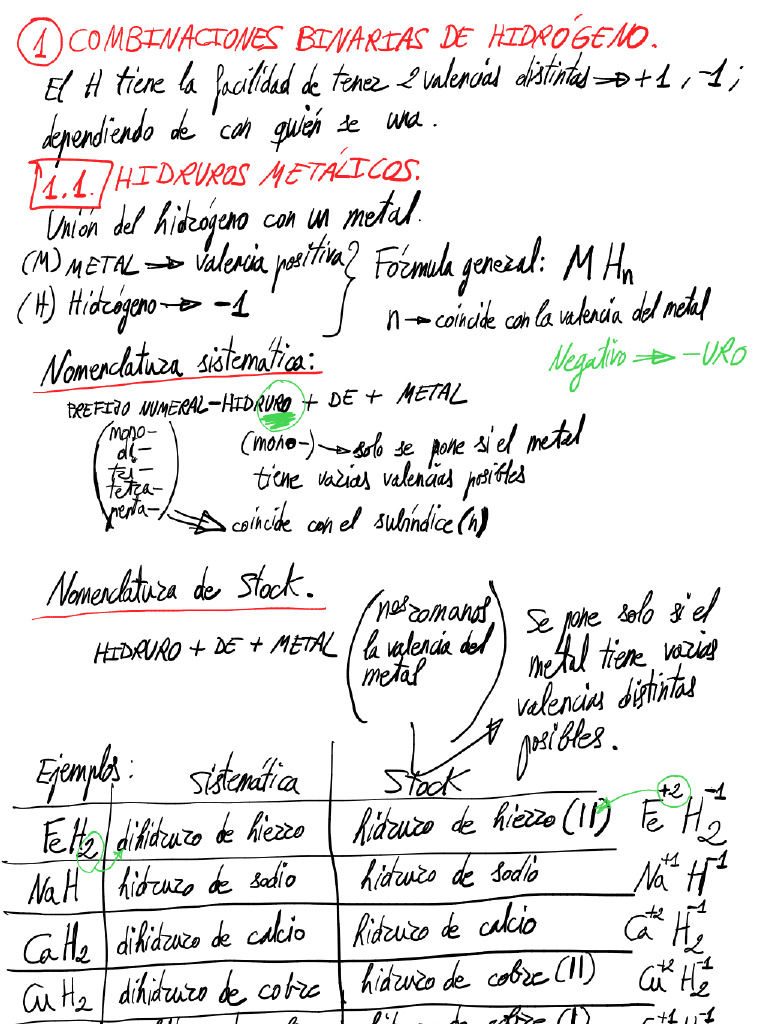 1 COMBINACIONES BINARIAS DE HIDRÓGENO.
El H tiene la facilidad de tener 2 valencias distintas → +1, -1;
dependiendo de con quién se una.
1.1. HIDRUROS METÁLICOS.
Unión del hidrógeno con un metal.
(M) METAL → valencia positiva
(H) Hidrógeno → -1
Fórmula general: M Hn
n → coincide con la valencia del metal
Nomenclatura sistemática:
Negativo → -URO
PREFIJO NUMERAL-HIDRURO + DE + METAL
(mono-
di-
tri-
tetra-
penta-)
(mono-) → solo se pone si el metal
tiene varias valencias posibles
→ coincide con el subíndice (n)
Nomenclatura de Stock.
HIDRURO + DE + METAL
(nos romanos
la valencia del
metal)
Se pone solo si el
metal tiene varias
valencias distintas
posibles.
Ejemplos: Sistemática Stock
FeH2 dihidruro de hierro hidruro de hierro (II) Fe+2 H2-1
NaH hidruro de sodio hidruro de sodio Na+1 H-1
CaH2 dihidruro de calcio Hidruro de calcio Ca+2 H2-1
CuH2 dihidruro de cobre hidruro de cobre (II) Cu+2 H2-1